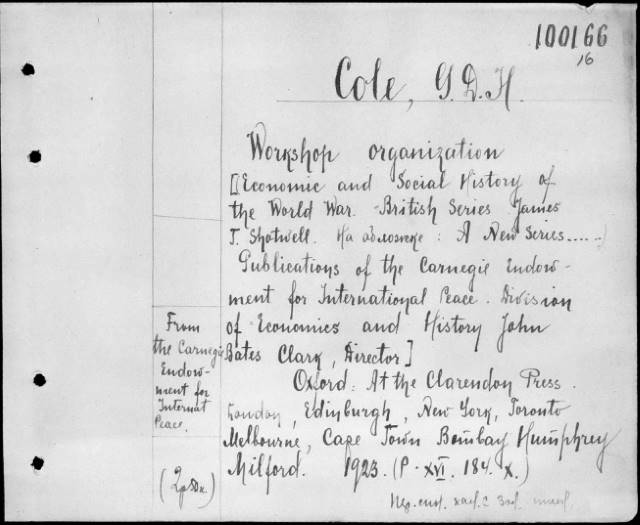 100166
16
Cole, G.D.H.
Workshop organization
[Economic and Social History of
the World War. British Series James
T. Shotwell. На обложке: A New Series.....
Publications of the Carnegie Endow-
ment for International Peace. Division
of Economics and History John
Bates Clark, Director]
Oxford: At the Clarendon Press.
London, Edinburgh, New York, Toronto
Melbourne, Cape Town Bombay Humphrey
Milford. 1923. (P. XVI. 184. X.)
From
the Carnegie
Endow-
ment for
Internat
Peace.